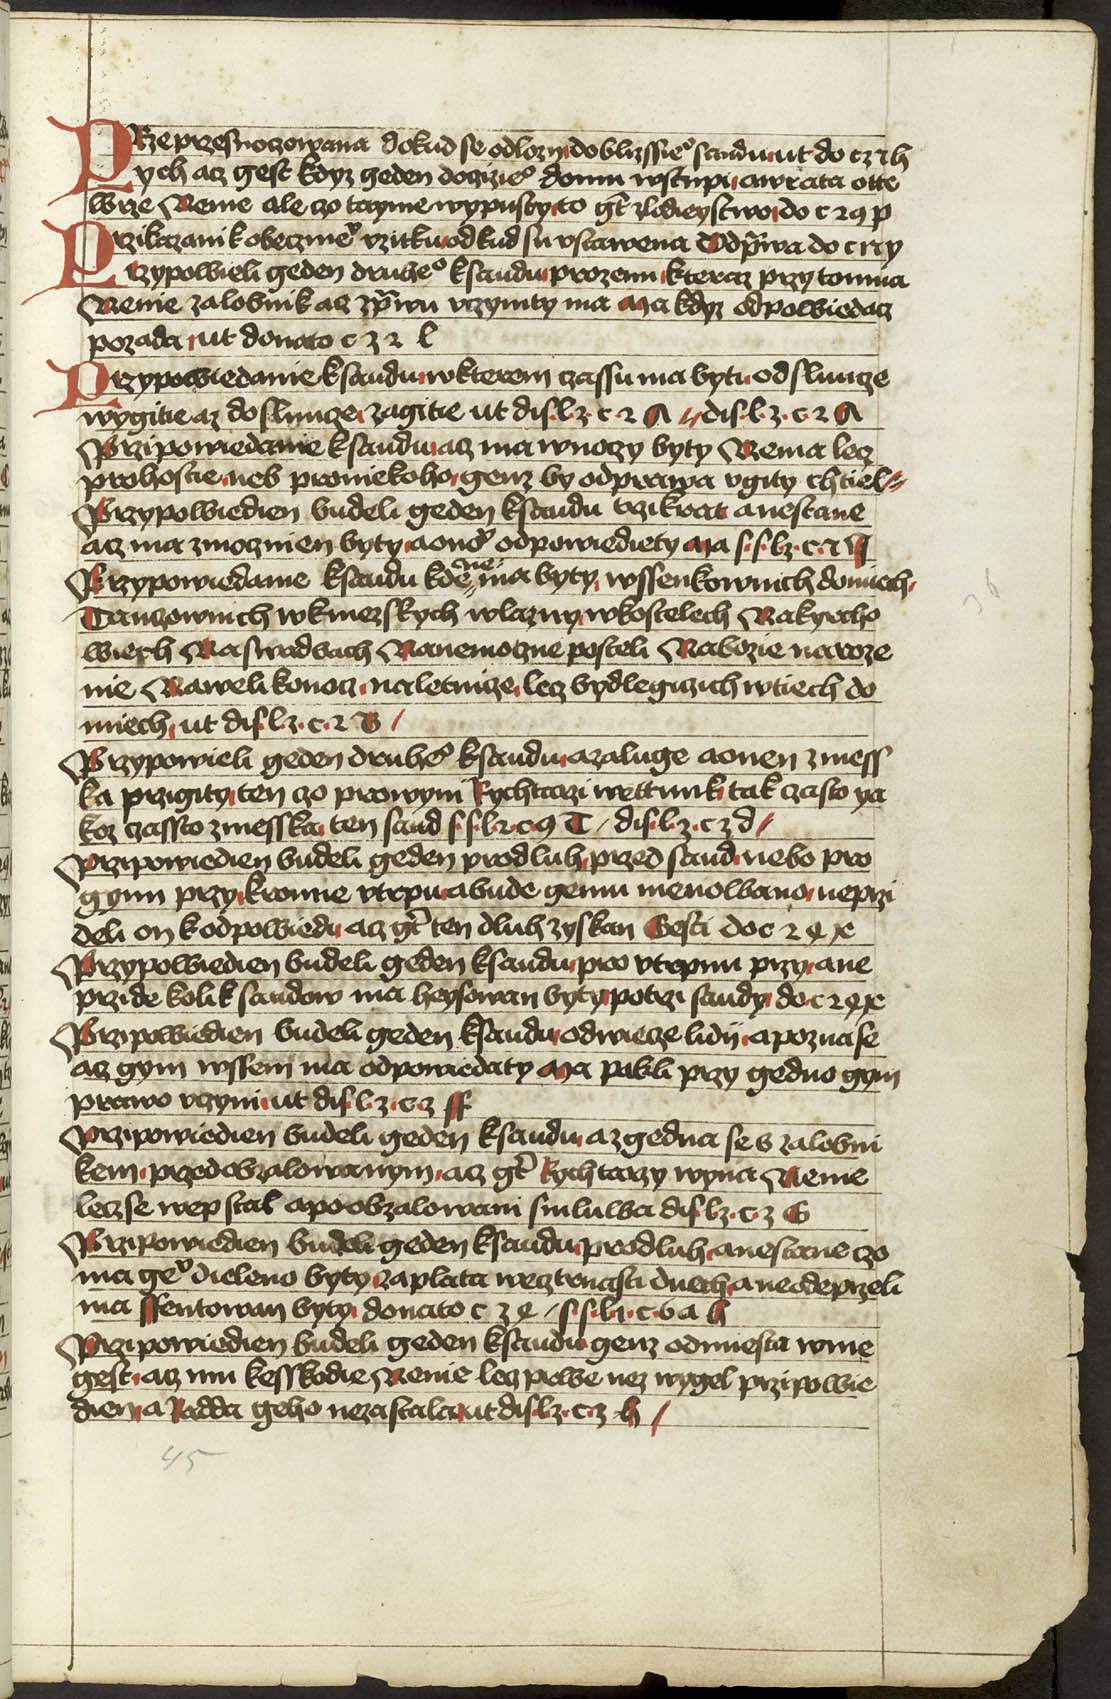 PRze przesnoczowana dokud se odlozy do blizssie⁰ saudu ut do c z i h
Pych acz gest kdyz geden doczizie⁰ domu wstupi a wrata otte
wrze Nenie ale czo tayme wypusty to gt zlodieystwo do c 2 9 p
Przikazani k obeczne⁰ uzitku odkud su ustawena Odprwa do c i i y
Przypowieli geden druhe⁰ k saudu pro zenu kteraz przytomna
Nenie zalobnik acz zprwu uczynity ma Ma kdyz odpowiedacz
pozada ut donato c z 2 l
Przypowiedanie k saudu w kterem czassu ma byti od slunce
wygitie az do slunce zagitie ut dis. l. z. c. 2 A // dis. l. z. c. 2 A
Przipowiedanie k saudu acz ma w noczy byty Nema lecz
pro hostie neb pro niekoho genz by od prawa ugity chtiel //
Przypowiedien budeli geden k saudu trzikrat a nestane
acz ma zmocznien byty a ono⁰ odpowiediety Ma s. s. l. z. c. 2
Przypowiedanie k saudu kde nema byty w ssenkownich domiech
Tanczownich w kniezskych w lazny w kostelech Na kyrcho
wiech Na swadbach Na nemoczne posteli Na bozie naroze
nie Na weliku nocz na letnicze lecz bydlegiczich w tiech do
miech ut dis. l. z. c. 2 B /
Przypowieli geden druhe⁰ k saudu a zaluge a onen zmess
ka przigity ten czo prowyni Rychtarzi wettunk tak czasto ya
koz czassto zmesska ten saud s. s. l. 2. c. 9 T / dis. l. z. c z d /
Przipowiedien budeli geden pro dluh przed saud nebo pro
gynu przy kromie utrpnu a bude gemu menowano neprzi
deli on k odpowiedi acz gt ten dluh zyskan Gest do c 2 4 x
Przypowiedien budeli geden k saudu pro utrpnu przy a ne
przide kolik saudow ma heysowan byty po trzi saudy do c 2 4 x
Przipowiedien budeli geden k saudu od wiecze lidij a pozna se
acz gym wssem ma odpowiedaty Ma pakli przy gedno gym
prawo uczyni ut dis. l. z. c. z ff
Przipowiedien budeli geden k saudu a zgedna se s zalobni
kem przed obzalowanym acz gt Rychtarzy wyna Nenie
lecz se wep stal a po obzalowani smluwa dis. l. z. c. z G
Przipowiedien budeli geden k saudu pro dluh a nestane czo
ma ge⁰ dieleno byty zaplata we cztrnasti dnech a ne odeprzeli
ma ssentowan byty donato c z e / s. s. l. 1. c. 6 a h
Przipowiedien budeli geden k saudu genz od miesta w mie
gest acz mu k esskodie Nenie lecz prwe nez wygel przipowie
dien a Rada geho nezastala ut dis. l. z. c. z h /
36
45